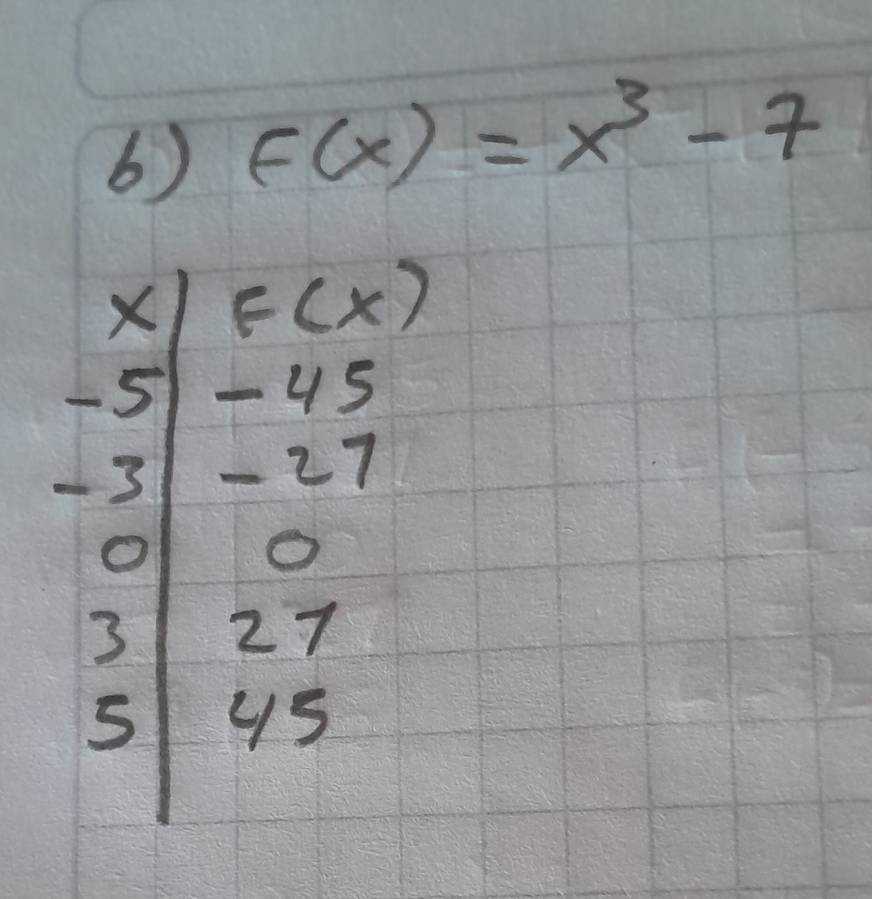 b) F(x) = x³ - 7
x | F(x)
-5 | -45
-3 | -27
0 | 0
3 | 27
5 | 45